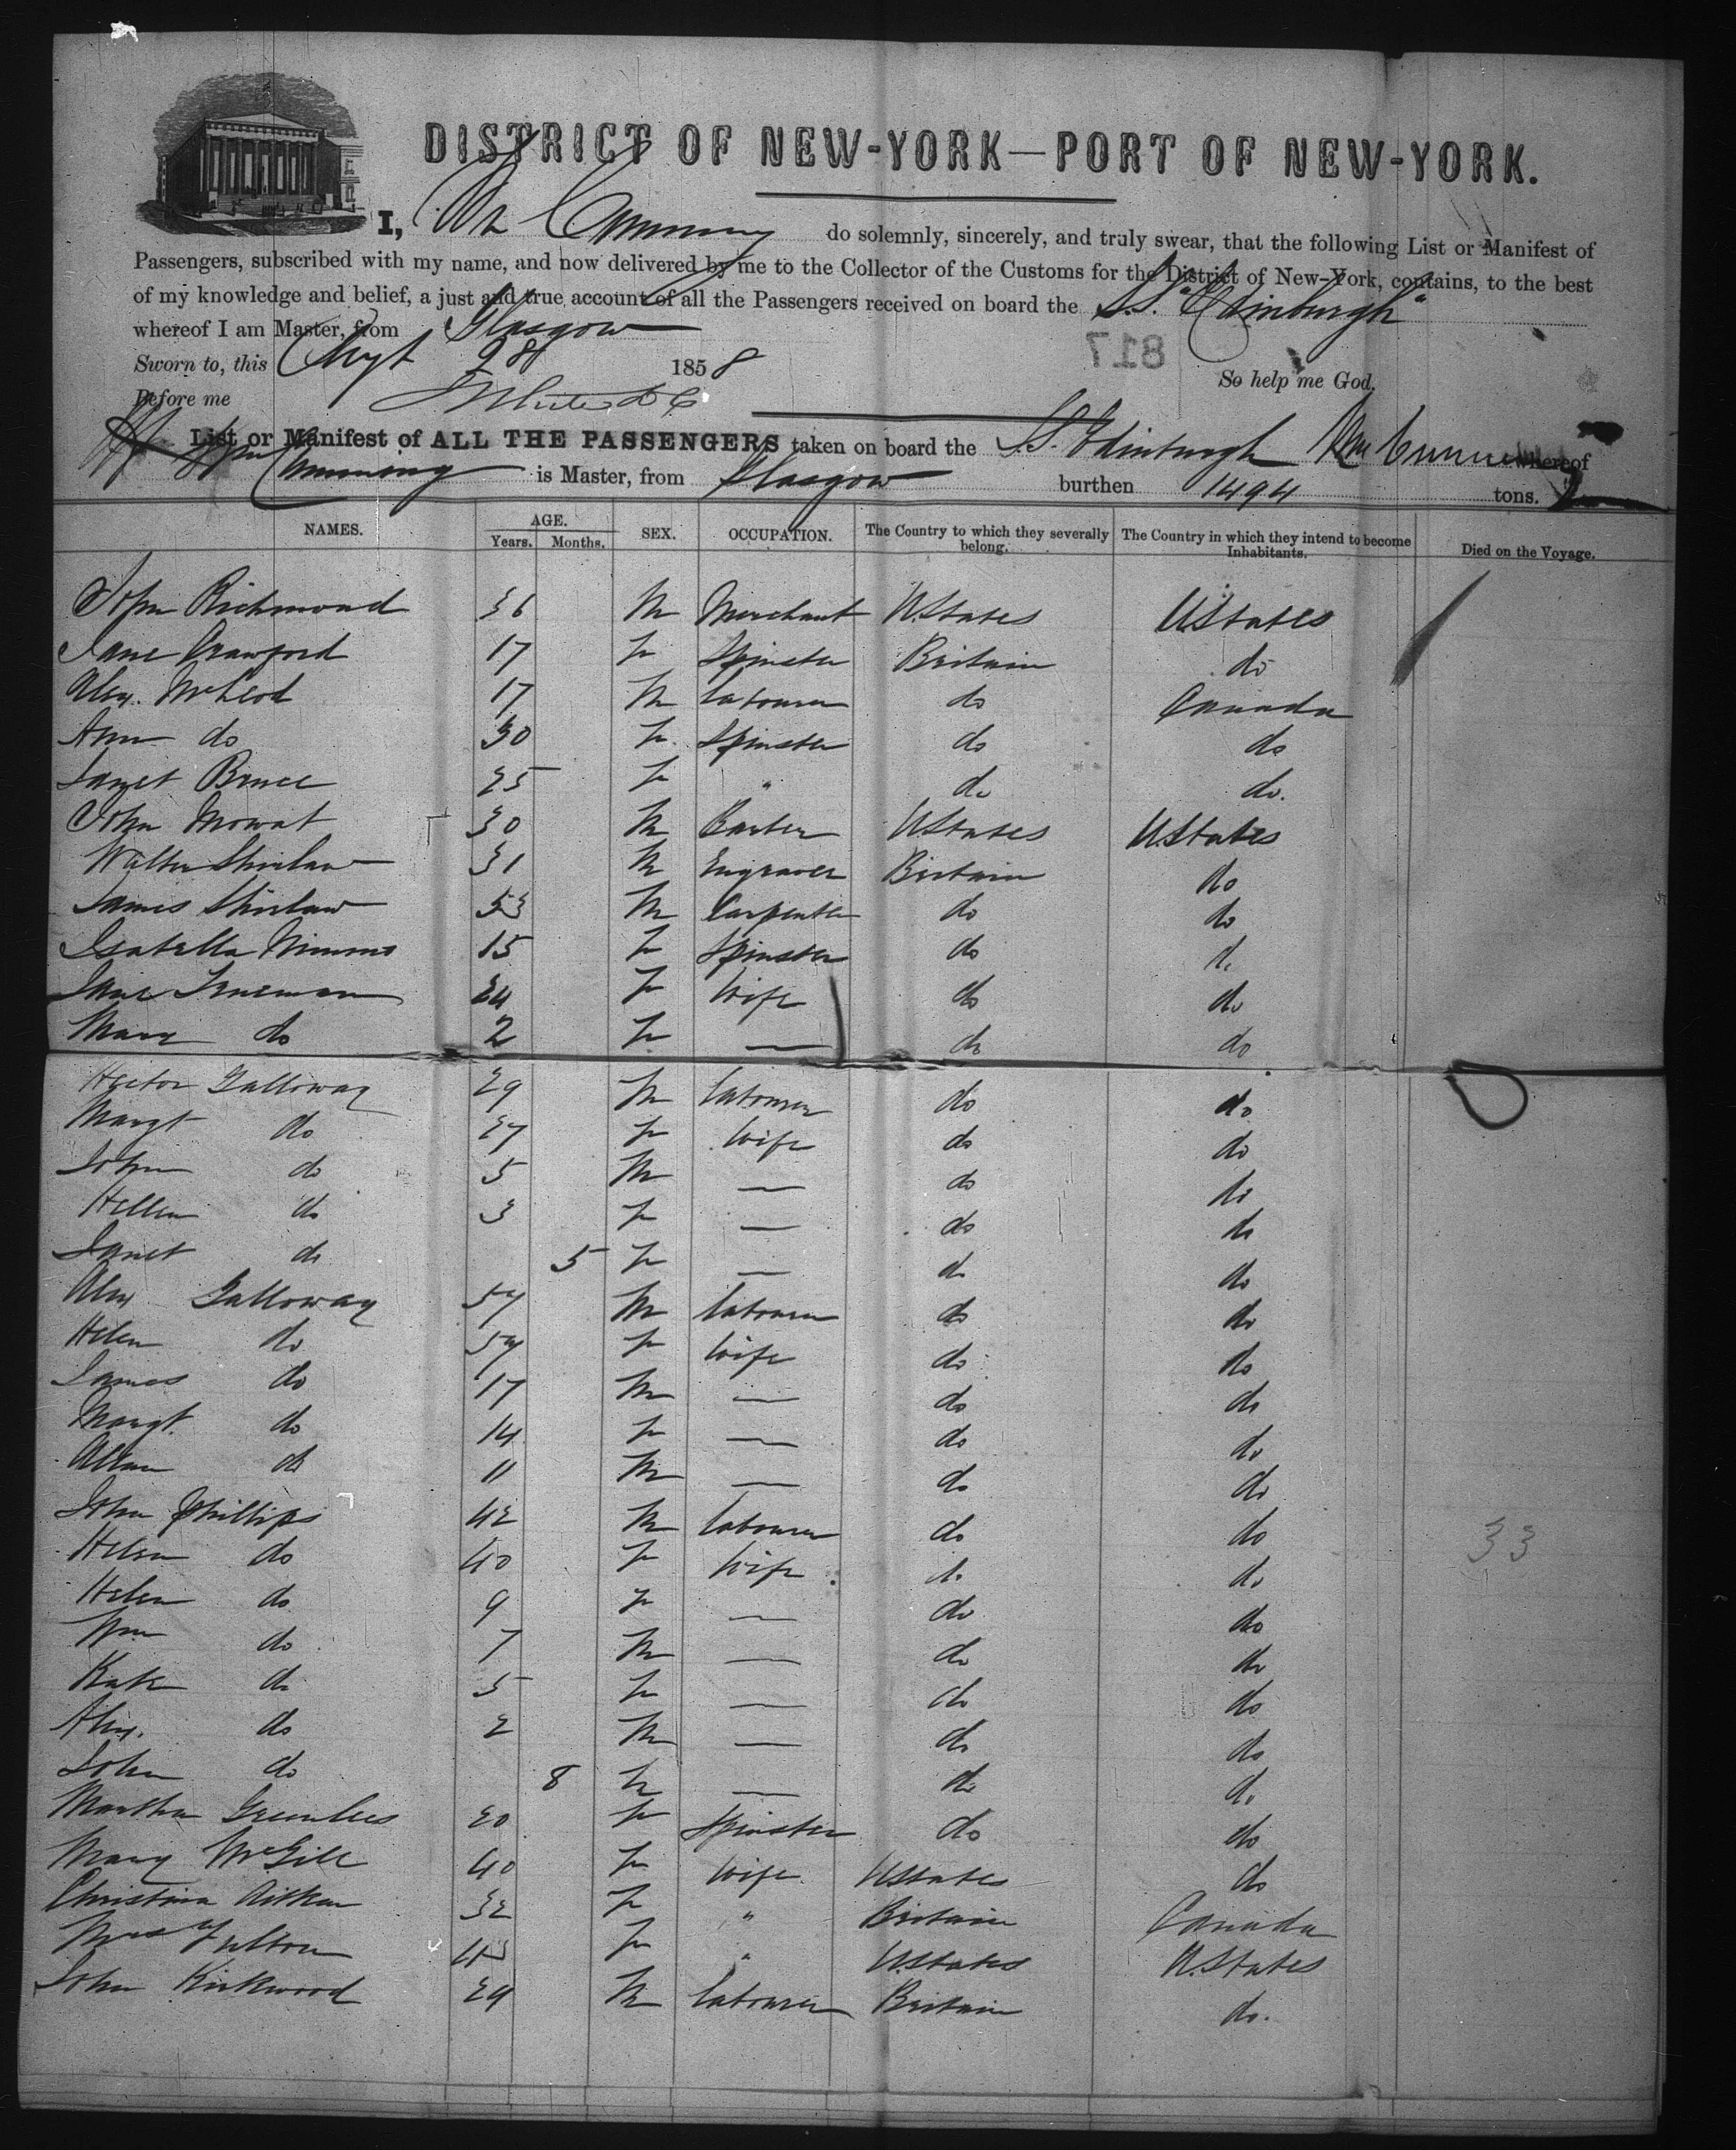 DISTRICT OF NEW-YORK—PORT OF NEW-YORK.
I, Wm Cumming do solemnly, sincerely, and truly swear, that the following List or Manifest of
Passengers, subscribed with my name, and now delivered by me to the Collector of the Customs for the District of New-York, contains, to the best
of my knowledge and belief, a just and true account of all the Passengers received on board the S.S. "Edinburgh"
whereof I am Master, from Glasgow
Sworn to, this 28 1858
817
So help me God.
Before me
List or Manifest of ALL THE PASSENGERS taken on board the S.S. Edinburgh whereof
Cumming is Master, from Glasgow burthen 1494 tons.
NAMES. AGE. Years. Months. SEX. OCCUPATION. The Country to which they severally belong. The Country in which they intend to become Inhabitants. Died on the Voyage.
John Richmond 36 M Merchant U.States U.States
Jane Crawford 17 F Spinster Britain do
Alex. McLeod 17 M Labourer do Canada
Ann do 30 F Spinster do do
Janet Bruce 25 F " do do.
John Mowat 30 M U.States U.States
Walter Shirlaw 31 M Engraver Britain do
James Shirlaw 53 M Carpenter do do
Isabella Nimmo 15 F Spinster do do
Jane Trueman 24 F Wife do do
Mary do 2 F — do do
Hector Galloway 29 M Labourer do do
Margt do 27 F Wife do do
John do 5 M — do do
Hellen do 3 F — do do
Janet do 5 F — do do
Alex Galloway 57 M Labourer do do
Helen do 54 F Wife do do
James do 17 M — do do
Margt. do 14 F — do do
Allan do 11 M — do do
John Phillips 42 M Labourer do do
Helen do 40 F Wife do do
Helen do 9 F — do do
Wm do 7 M — do do
Kate do 5 F — do do
Alex. do 2 M — do do
John do 8 — do do
Martha Greenlees 20 F Spinster do do
Mary McGill 40 F Wife UStates do
Christina Aitken 32 F " Britain Canada
Mrs Fulton 43 F " U.States U.States
John Kirkwood 29 M Labourer Britain do.
33